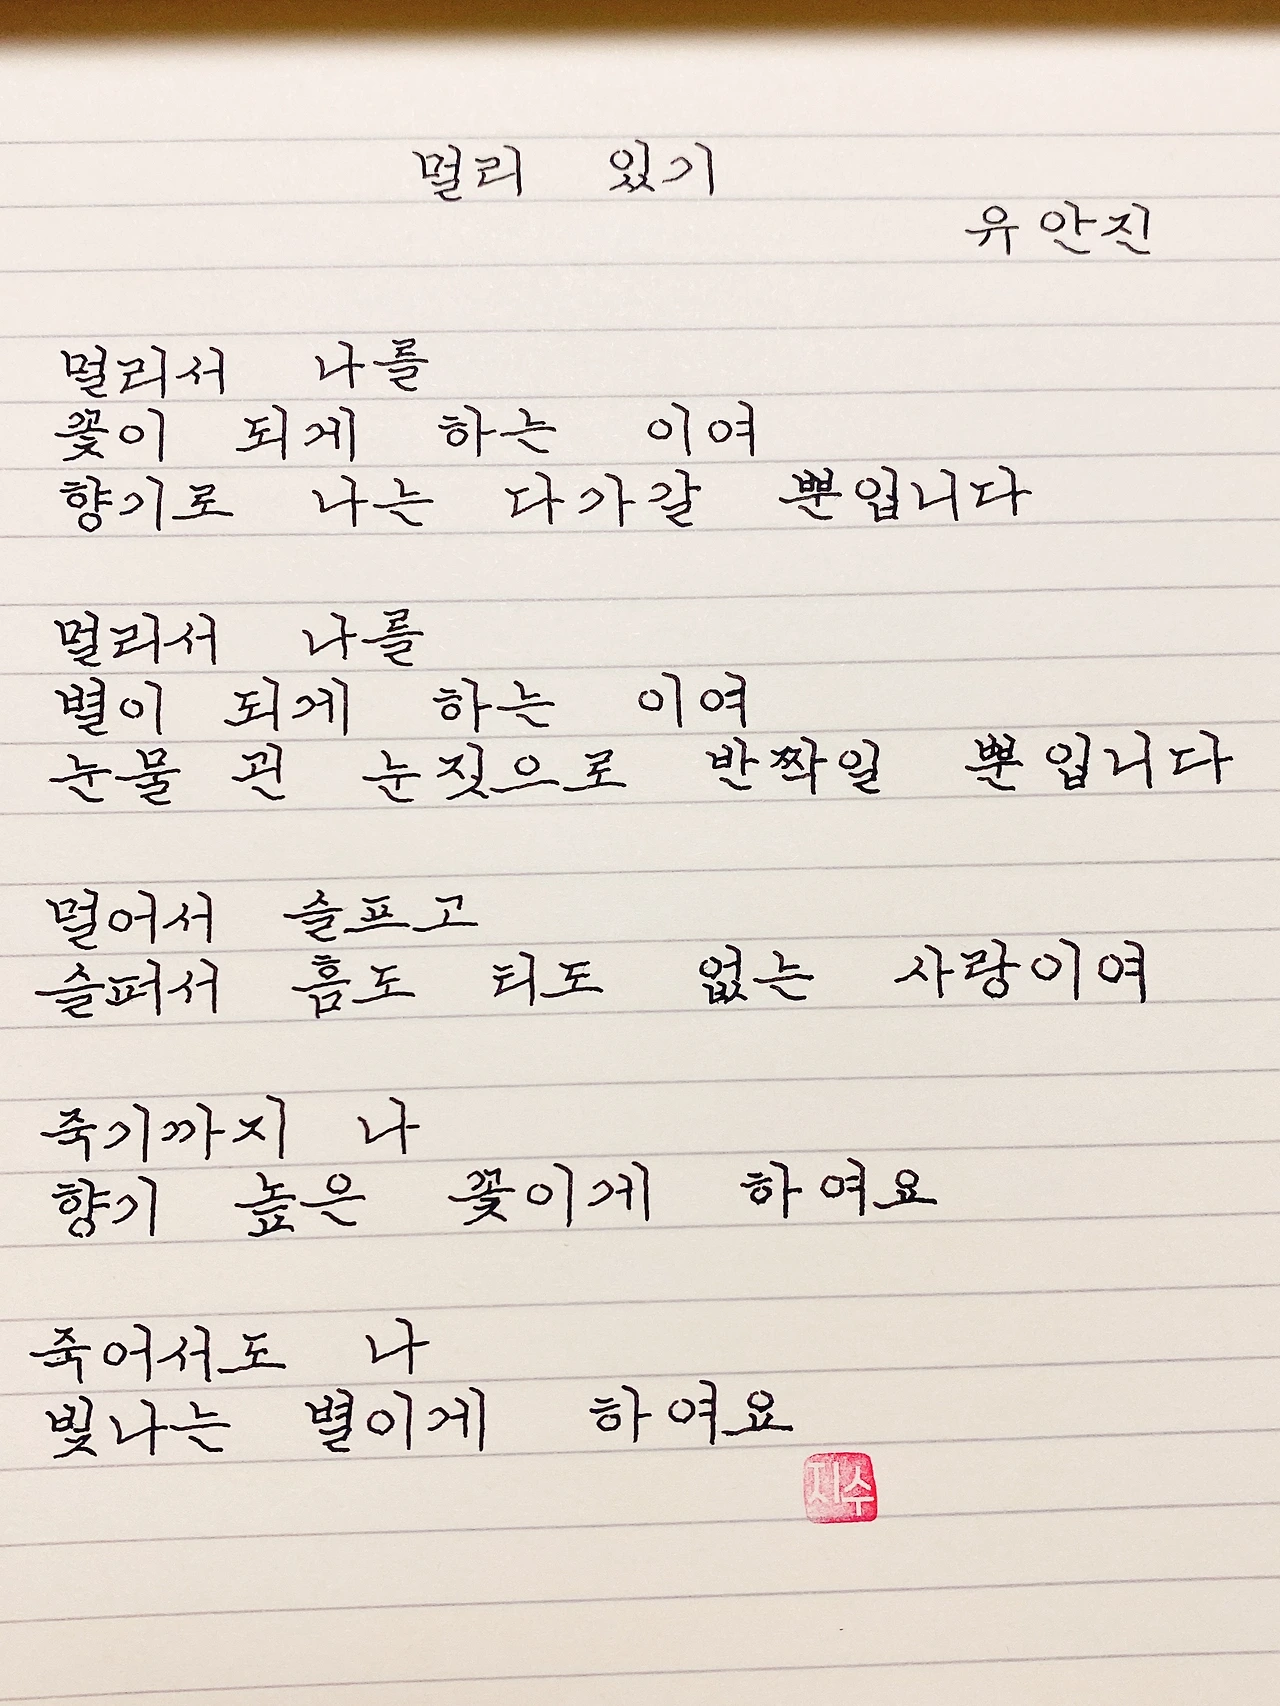 멀리 있기
유안진
멀리서 나를
꽃이 되게 하는 이여
향기로 나는 다가갈 뿐입니다
멀리서 나를
별이 되게 하는 이여
눈물 괸 눈짓으로 반짝일 뿐입니다
멀어서 슬프고
슬퍼서 흠도 티도 없는 사랑이여
죽기까지 나
향기 높은 꽃이게 하여요
죽어서도 나
빛나는 별이게 하여요
지수